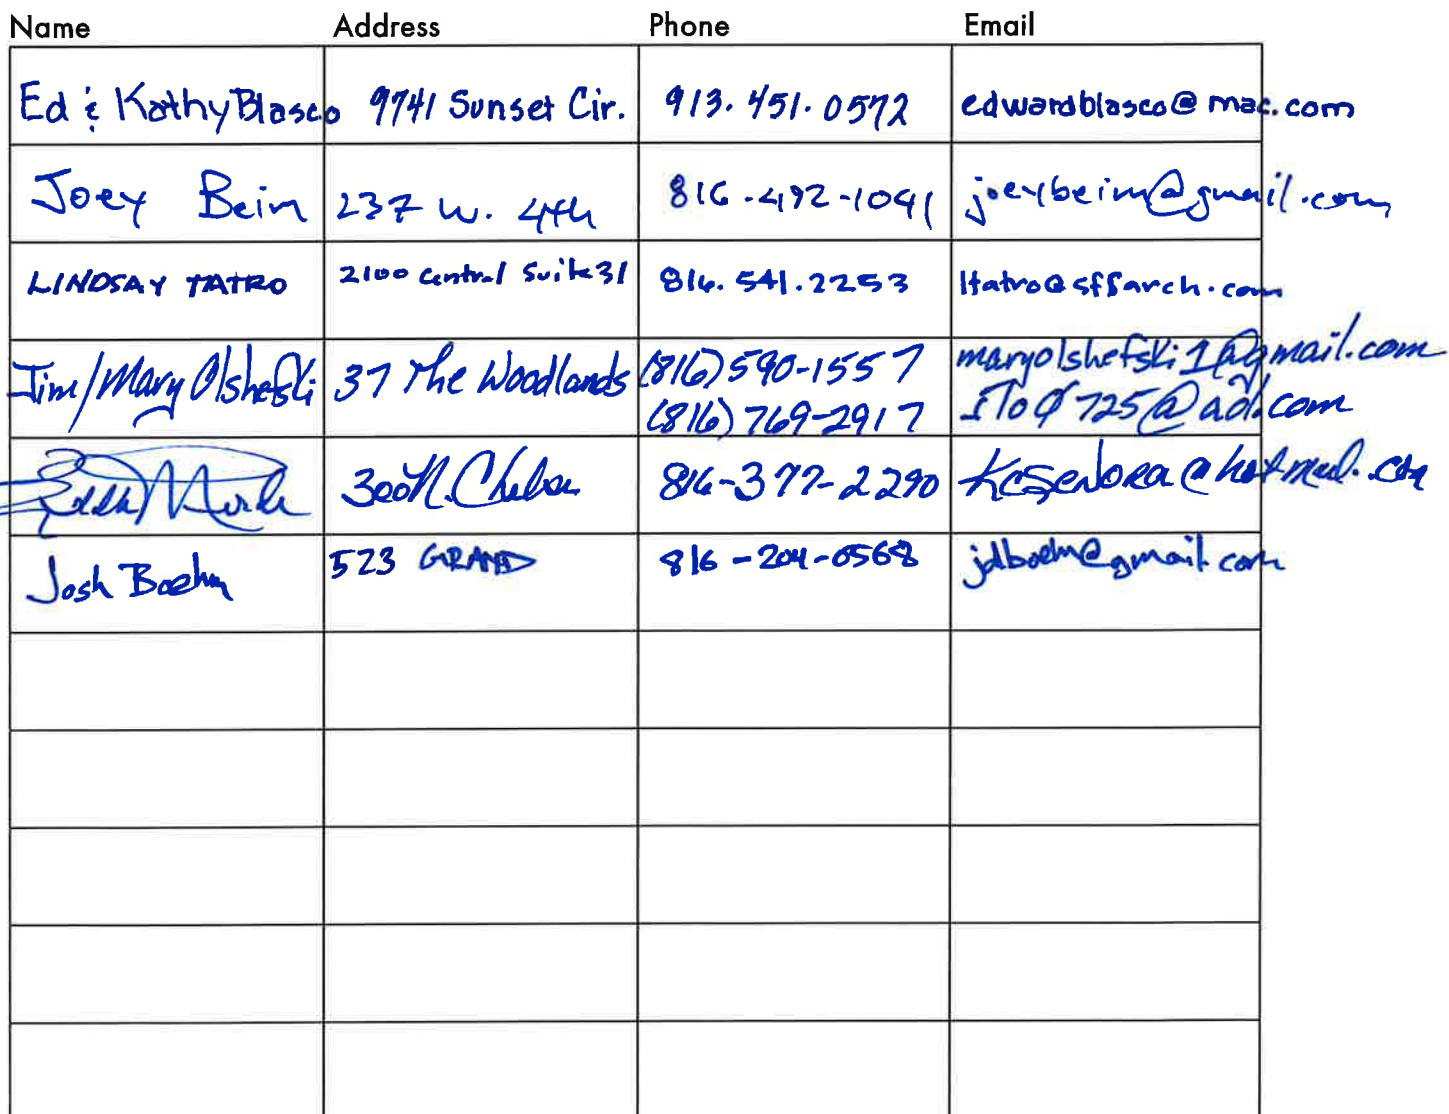 Name Address Phone Email
Ed & Kathy Blasco 9741 Sunset Cir. 913.451.0572 edwardblasco@mac.com
Joey Bein 237 W. 4th 816-492-1091 joeybeim@gmail.com
LINDSAY TATRO 2100 Central Suite 31 816.541.2253 ltatro@sffarch.com
Jim/Mary Olshefski 37 The Woodlands (816) 590-1557 maryolshefski1@gmail.com
(816) 769-2917 @aol.com
300 N. Chelsea 816-377-2290
Josh Boehm 523 GRAND 816-204-0568 jdboehm@gmail.com